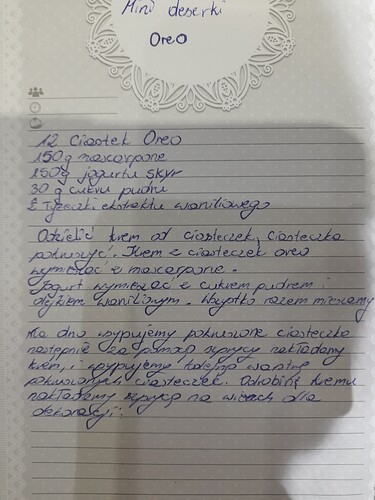 Mini deserki
Oreo
12 Ciastek Oreo
150g mascarpone
150g jogurtu skyr
30 g cukru pudru
2 łyżeczki ekstraktu waniliowego
Oddzielić krem od ciasteczek, ciasteczka
pokruszyć. Krem z ciasteczek oreo
wymieszać z mascarpone.
Jogurt wymieszać z cukrem pudrem i
olejkiem waniliowym. Wszystko razem mieszamy
Na dno wsypujemy pokruszone ciasteczka
następnie za pomocą szprycy nakładamy
krem, i wsypujemy kolejną warstwę
pokruszonych ciasteczek. Odrobinę kremu
nakładamy szprycą na wierzch dla
dekoracji.